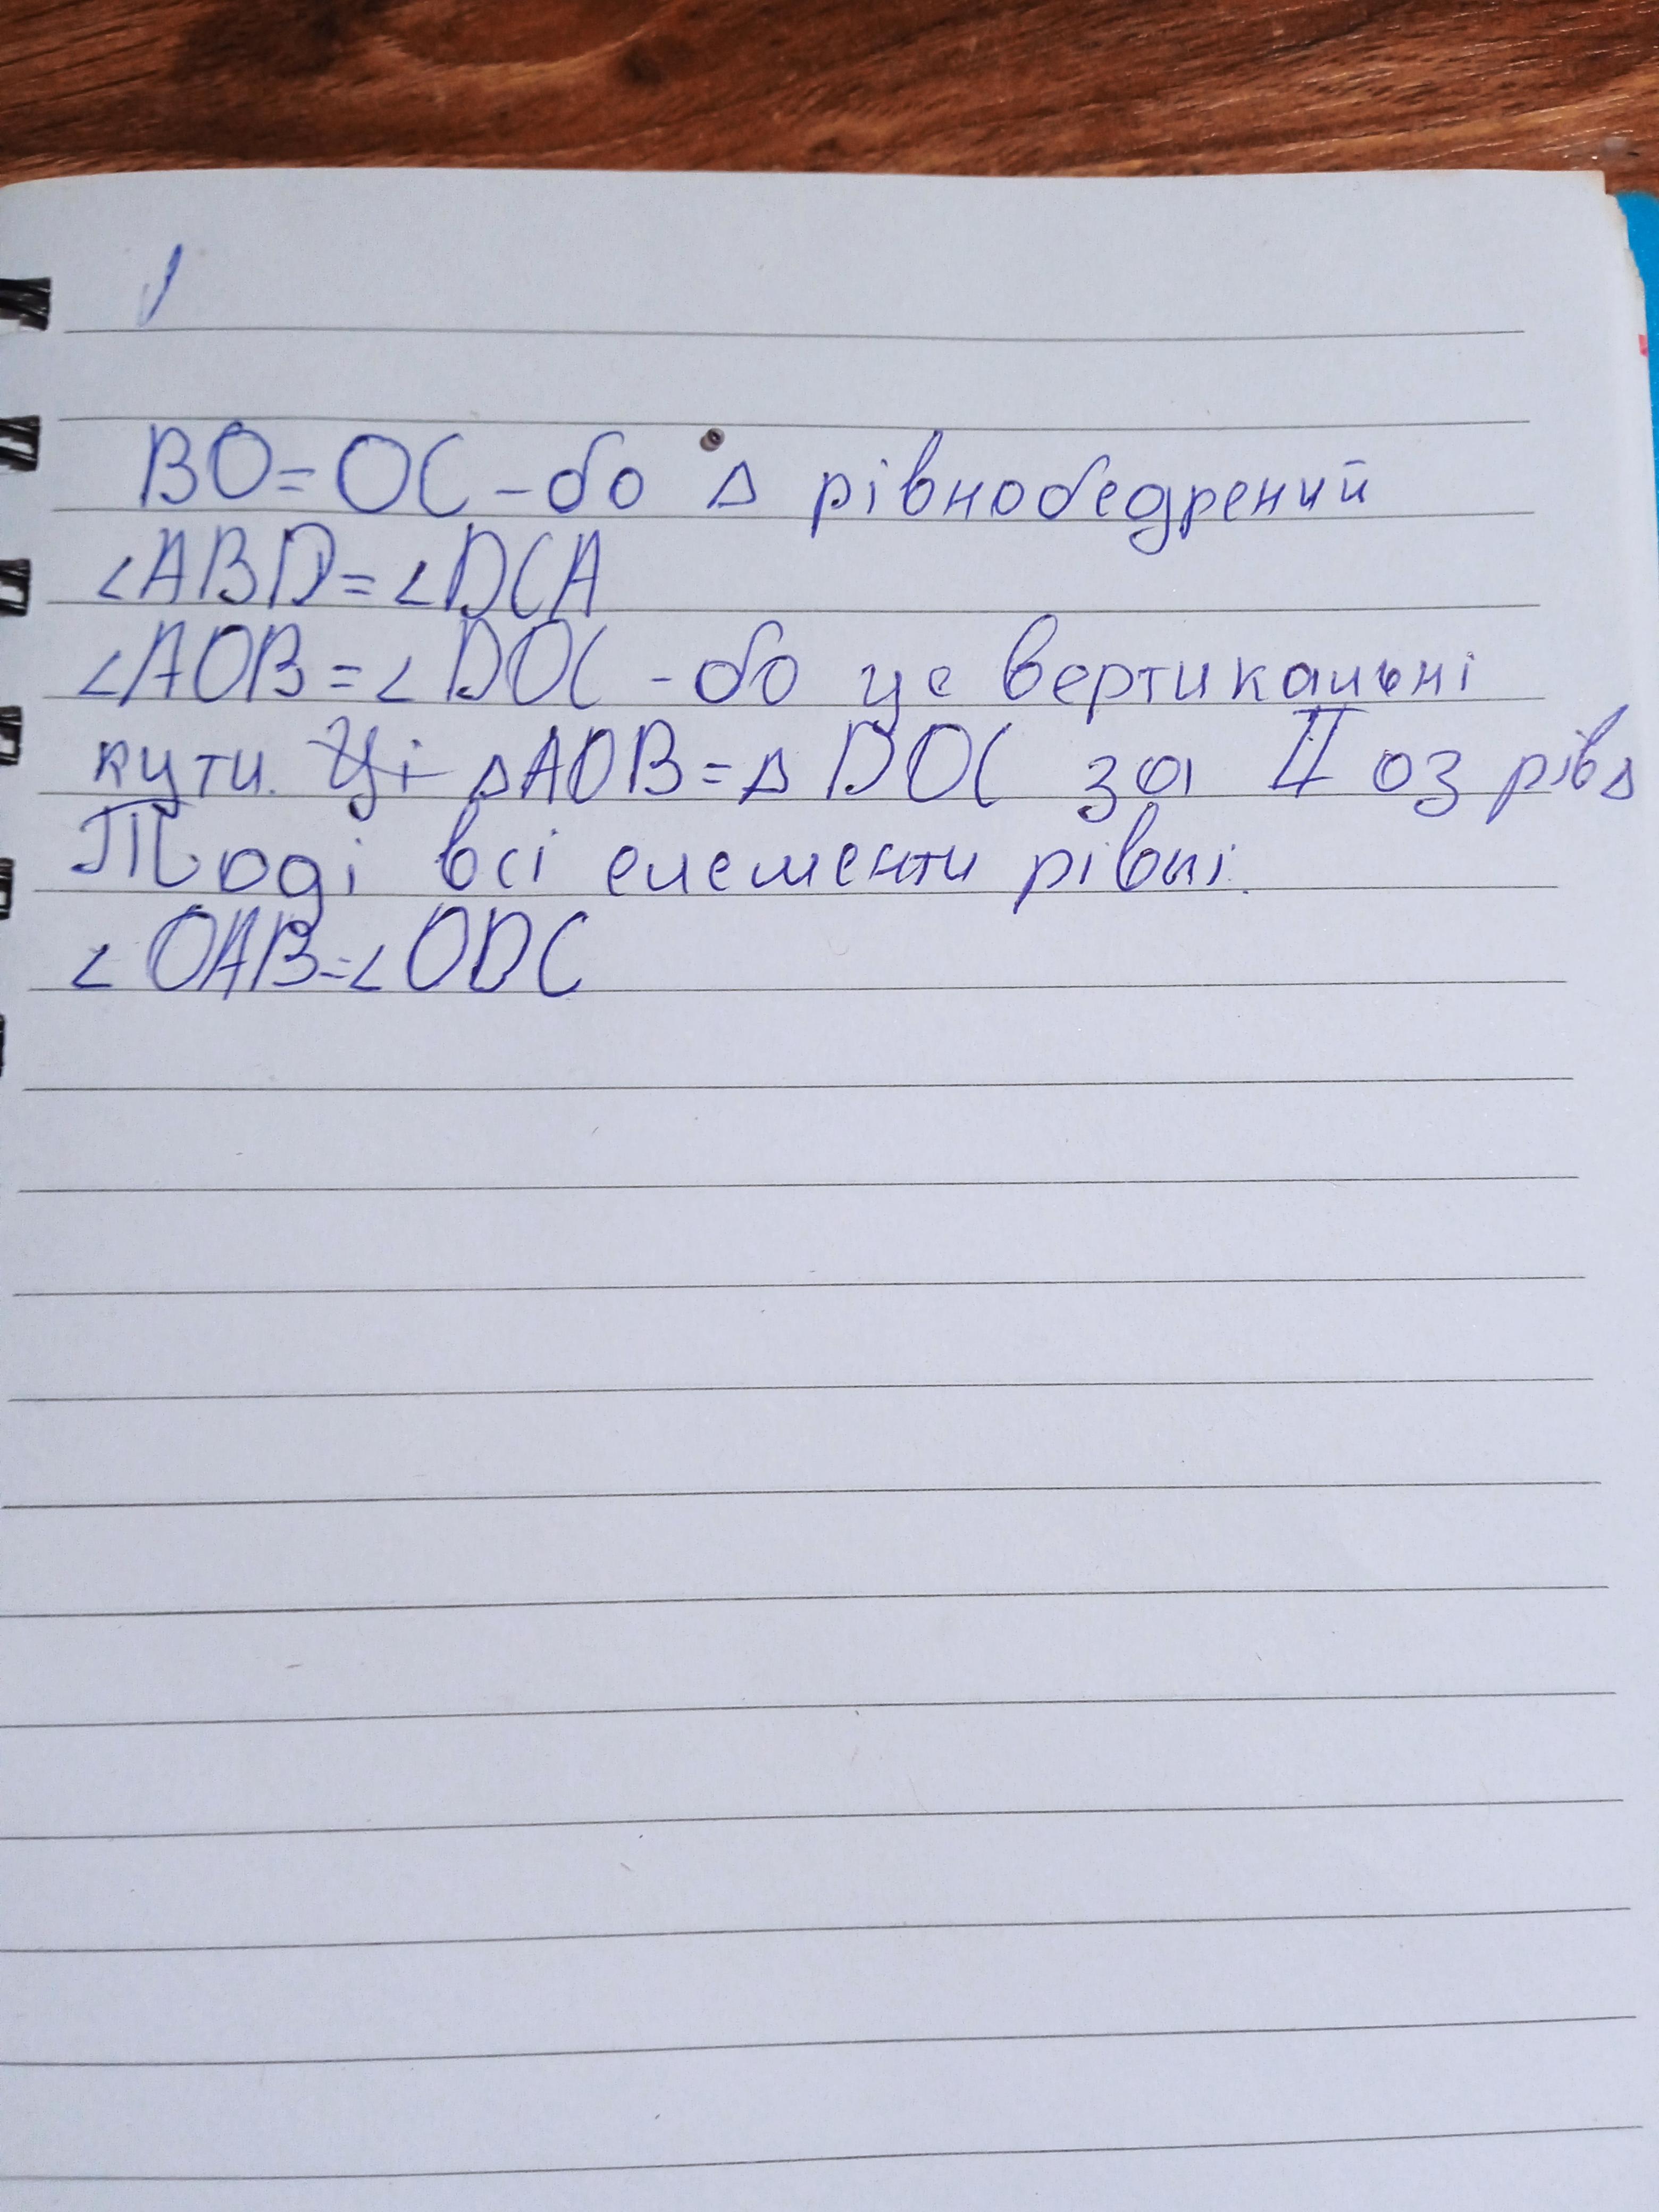 1
BO=OC-бо Δ рівнобедрений
∠ABD=∠DCA
∠AOB=∠DOC -бо це вертикальні
кути. Ці ΔAOB=Δ DOC за II оз рівΔ
Тоді всі елементи рівні.
∠OAB=∠ODC